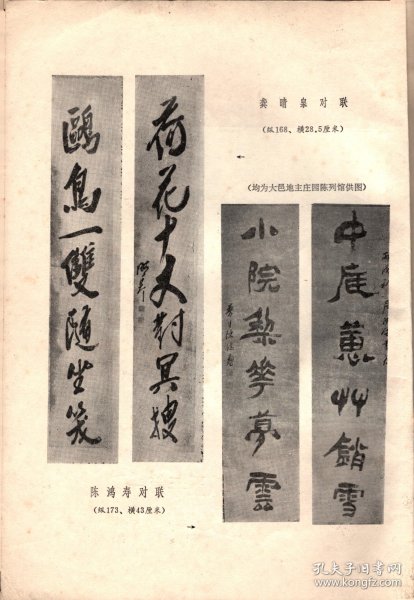 龚晴皋对联
(纵168、横28.5厘米)
(均为大邑地主庄园陈列馆供图)
荷花十丈對冥搜
鴻壽
鷗鳥一雙隨坐
中庭蕙艸銷雪
小院棃華夢雲
陈鸿寿对联
(纵173、横43厘米)
孔夫子旧书网
www.kongfz.com